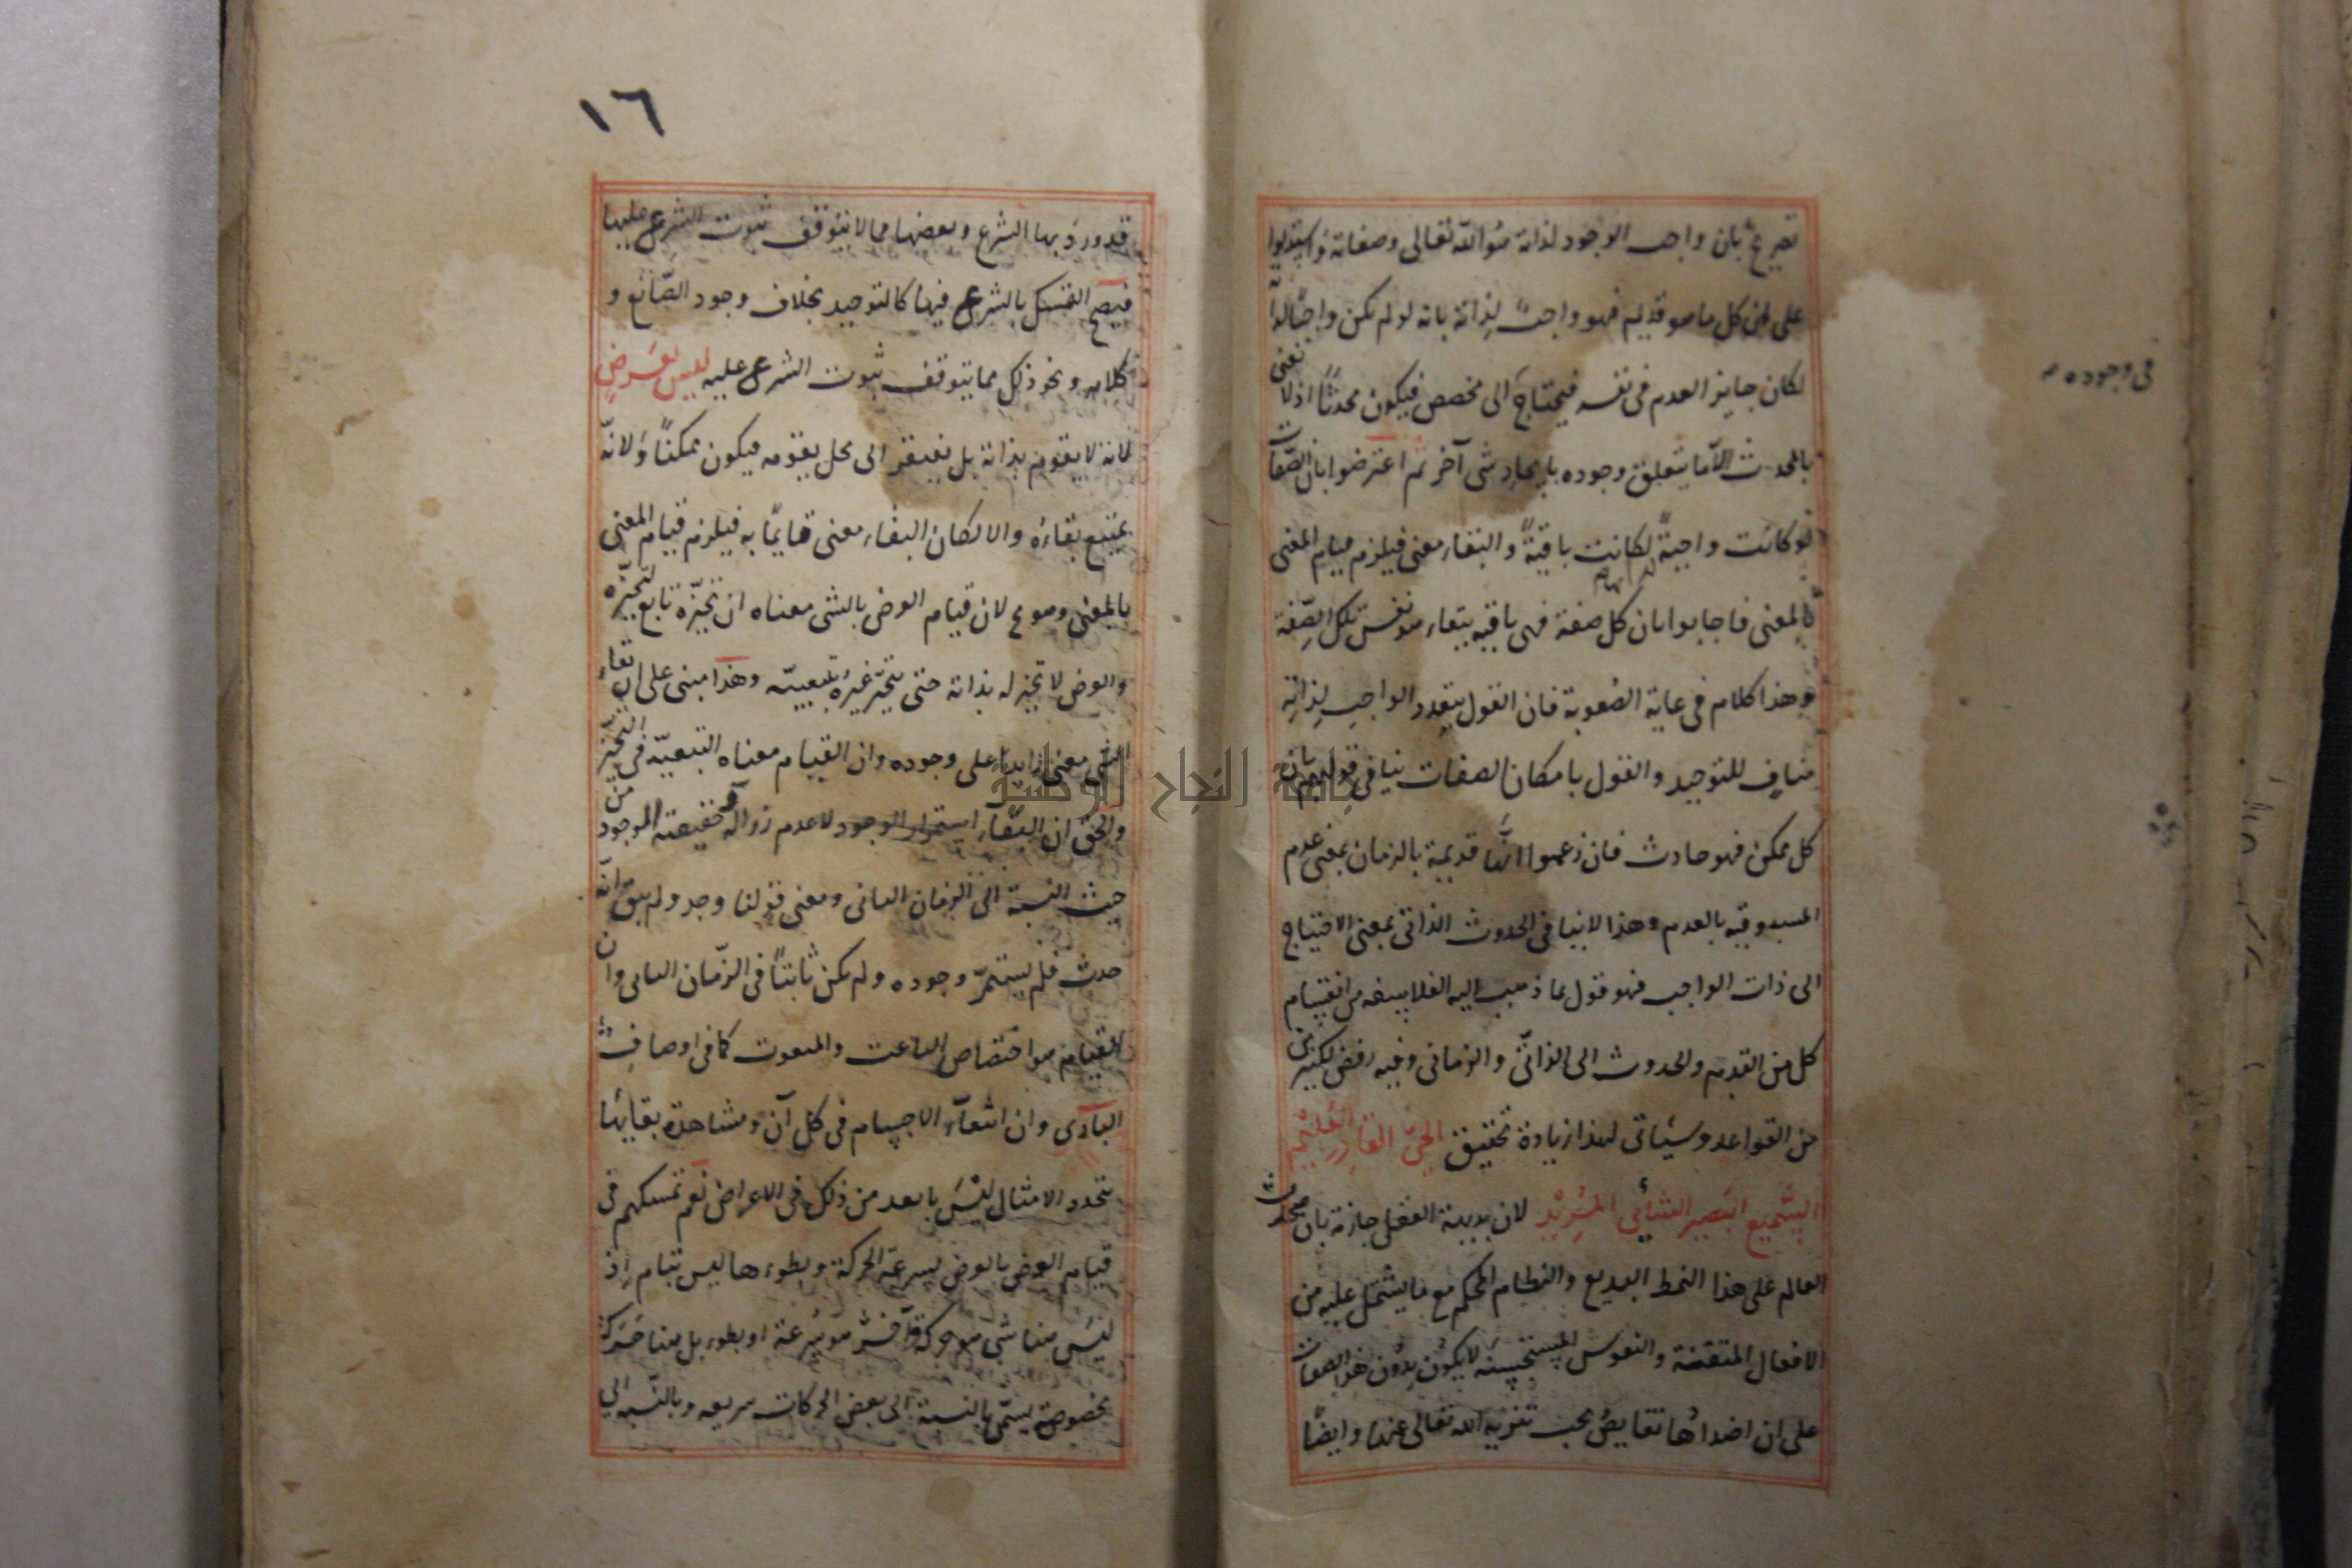 تصريح بان واجب الوجود لذاته هو الله تعالى وصفاته واستدلوا
على ان كل ما هو قديم فهو واجب لذاته بانه لو لم يكن واجبًا لذاته
لكان جايز العدم فى نفسه فيحتاج الى مخصص فيكون محدثًا اذ لا نعنى
فى وجوده
بالمحدث الا ما يتعلق وجوده بايجاد شى آخر ثم اعترضوا بان الصفات
لو كانت واجبةً لكانت باقيةً والبقاء معنى فيلزم قيام المعنى
بالمعنى فاجابوا بان كل صفة فهى باقيه ببقاء هو نفس تلك الصفة
وهذا كلام فى غاية الصعوبة فان القول بتعدد الواجب لذاته
مناف للتوحيد والقول بامكان الصفات ينافى قولهم بان
كل ممكن فهو حادث فان زعموا انها قديمة بالزمان بمعنى عدم
المسبوقيه بالعدم وهذا لا ينافى الحدوث الذاتى بمعنى الاحتياج
الى ذات الواجب فهو قول بما ذهب اليه الفلاسفه من انقسام
كل من القدم والحدوث الى الذاتى والزمانى وفيه رفض لكثير
من القواعد وسياتى لهذا زيادة تحقيق الحى القادر العليم
السميع البصير الشائى المريد لان بديهة العقل جازمة بان محدث
العالم على هذا النمط البديع والنظام المحكم مع ما يشتمل عليه من
الافعال المتقنة والنقوش المستحسنه لا يكون بدون هذه الصفات
على ان اضدادها نقايص يجب تنزيه الله تعالى عنها وايضًا
١٦
قد ورد بها الشرع وبعضها مما لا يتوقف ثبوت الشرع عليها
فيصح التمسك بالشرع فيها كالتوحيد بخلاف وجود الصانع و
كلامه ونحو ذلك مما يتوقف ثبوت الشرع عليه ليس بعرض
لانه لا يقوم بذاته بل يفتقر الى محل يقومه فيكون ممكنًا ولانه
يمتنع بقاؤه والا لكان البقاء معنى قايمًا به فيلزم قيام المعنى
بالمعنى وهو مح لان قيام العرض بالشى معناه ان تحيزه تابع لتحيزه
والعرض لا تحيز له بذاته حتى يتحيز غيره بتبعيته وهذا مبنى على ان بقاء
الشى معنى زايد على وجوده وان القيام معناه التبعية فى التحيز
والحق ان البقاء استمرار الوجود لا عدم زواله وحقيقته الموجود من
حيث النسبة الى الزمان الثانى ومعنى قولنا وجد ولم يبق انه
حدث فلم يستمر وجوده ولم يكن ثابتًا فى الزمان الثانى وان
القيام هو اختصاص الناعت والمنعوت كما فى اوصاف
البارى وان انتفاء الاجسام فى كل آن ومشاهدة بقايها
بتجدد الامثال ليس بابعد من ذلك فى الاعراض نعم تمسكهم فى
قيام العرض بالعرض بسرعة الحركة وبطوءها ليس بتام اذ
ليس هنا شى هو حركة وآخر هو سرعة او بطوء بل هنا حركة
مخصوصة يسمى بالنسبة الى بعض الحركات سريعه وبالنسبه الى
جامعة النجاح الوطنية